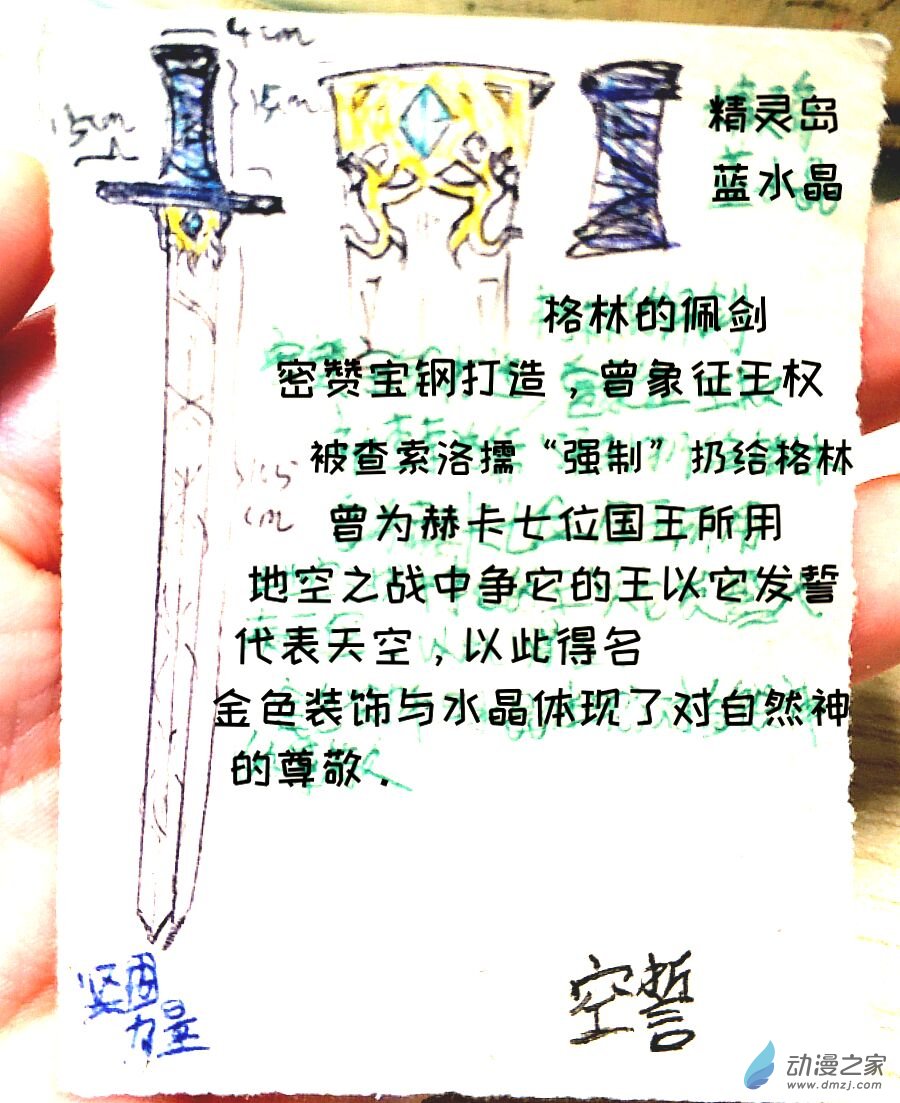 4cm
15cm
13cm
精灵岛
蓝水晶
格林的佩剑
密赞宝钢打造，曾象征王权
被查索洛擩“强制”扔给格林
曾为赫卡七位国王所用
地空之战中争它的王以它发誓
cm
代表天空，以此得名
金色装饰与水晶体现了对自然神
的尊敬．
坚固
力量
空誓
动漫之家
www.dmzj.com